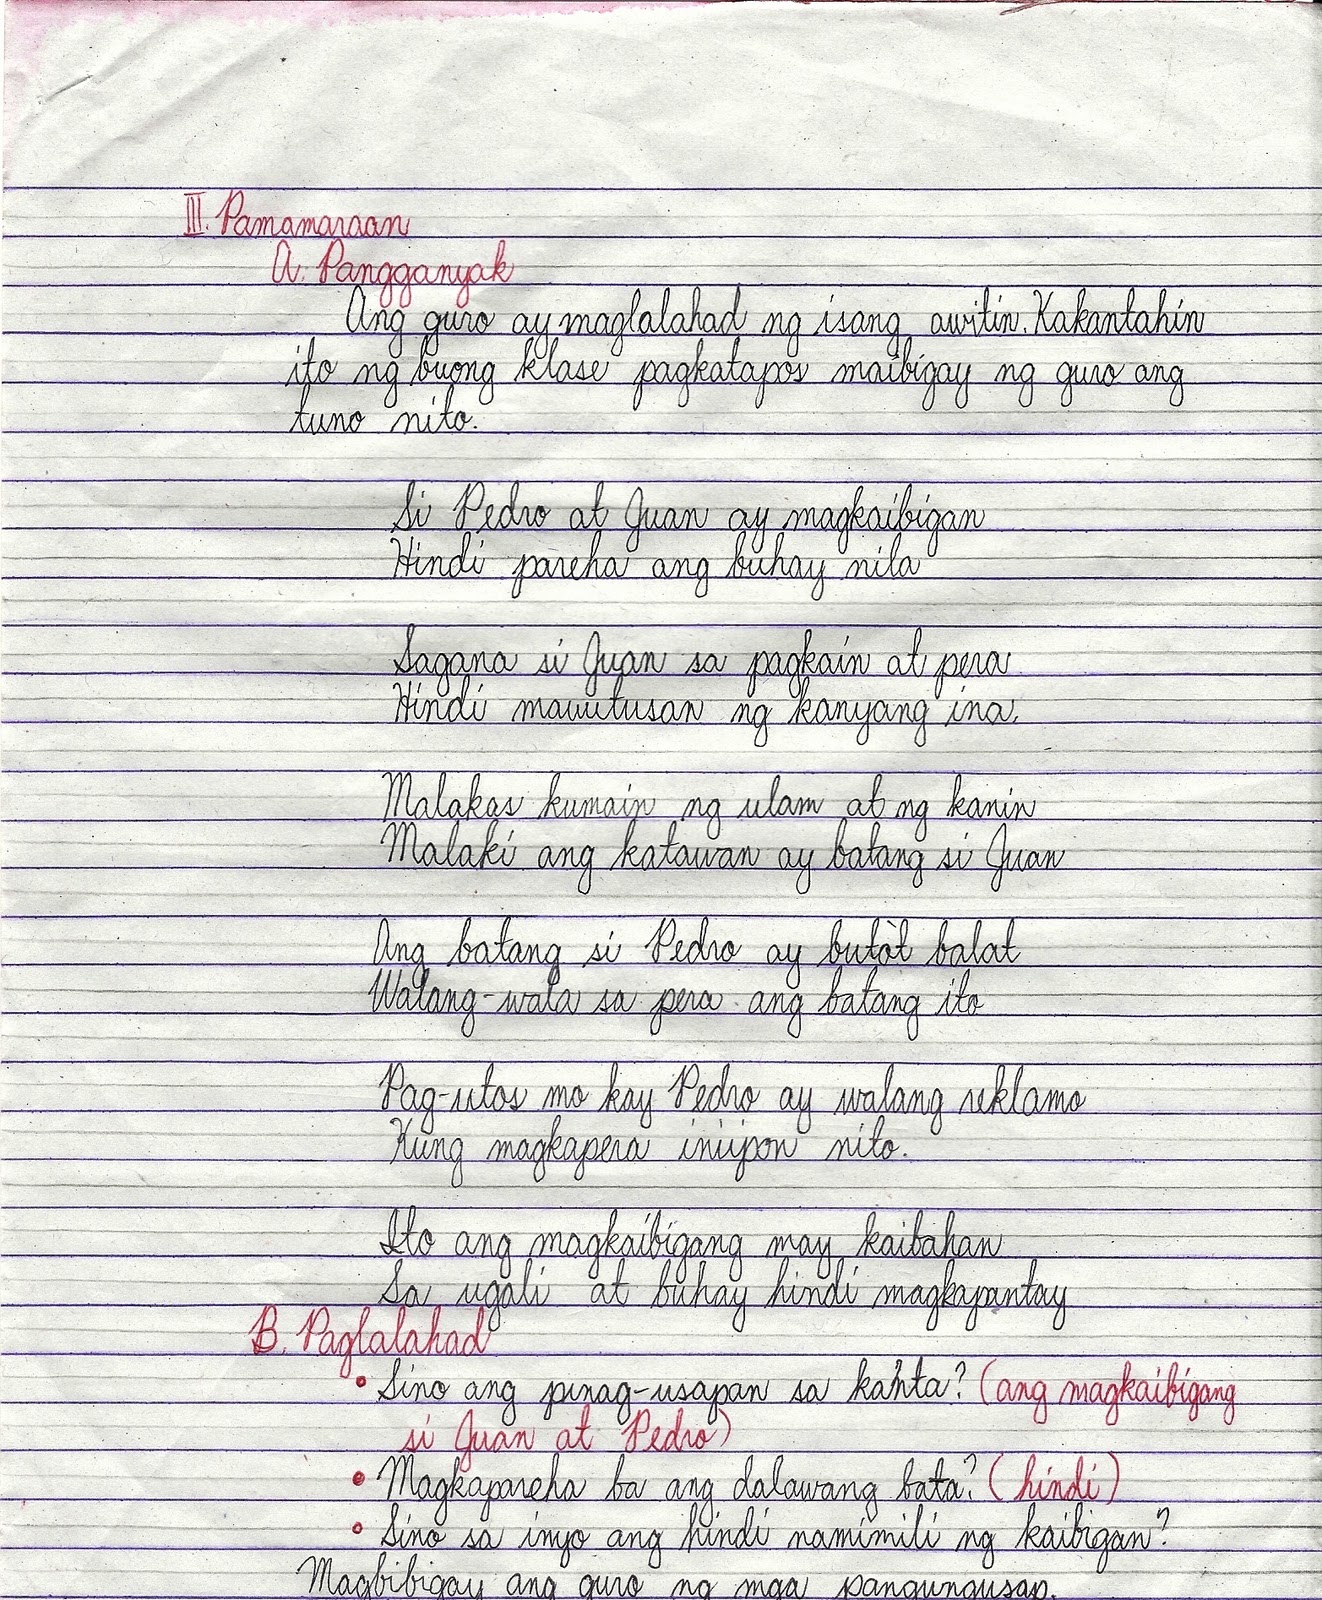 III. Pamamaraan
A. Pangganyak
Ang guro ay maglalahad ng isang awitin. Kakantahin
ito ng buong klase pagkatapos maibigay ng guro ang
tuno nito.
Si Pedro at Juan ay magkaibigan
Hindi pareha ang buhay nila
Sagana si Juan sa pagkain at pera
Hindi mauutusan ng kanyang ina.
Malakas kumain ng ulam at ng kanin
Malaki ang katawan ay batang si Juan
Ang batang si Pedro ay butot balat
Walang-wala sa pera ang batang ito
Pag-utos mo kay Pedro ay walang reklamo
Kung magkapera iniipon nito.
Ito ang magkaibigang may kaibahan
Sa ugali at buhay hindi magkapantay
B. Paglalahad
• Sino ang pinag-usapan sa kanta? (ang magkaibigang
si Juan at Pedro)
• Magkapareha ba ang dalawang bata? (hindi)
• Sino sa inyo ang hindi namimili ng kaibigan?
Magbibigay ang guro ng mga pangungusap.